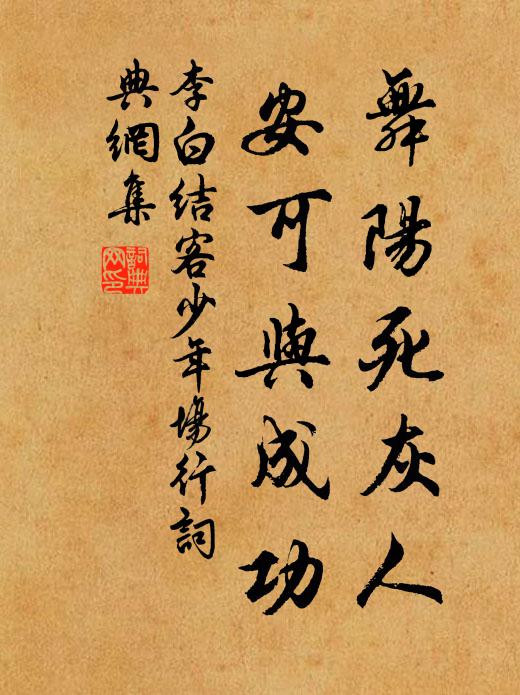 舞陽死灰人
安可與成功
李白結客少年場行詞
典網集
詞典網印